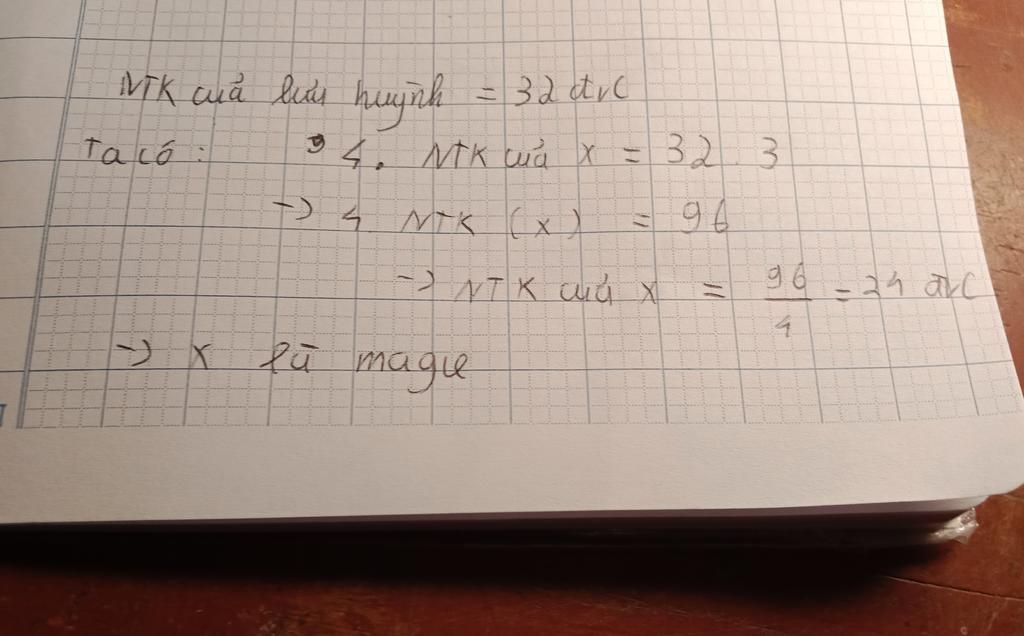 NTK của lưu huỳnh = 32 đvC
Ta có: 4. NTK của X = 32 . 3
-> 4 NTK (x) = 96
-> NTK của X = 96/4 = 24 đvC
-> X là magie